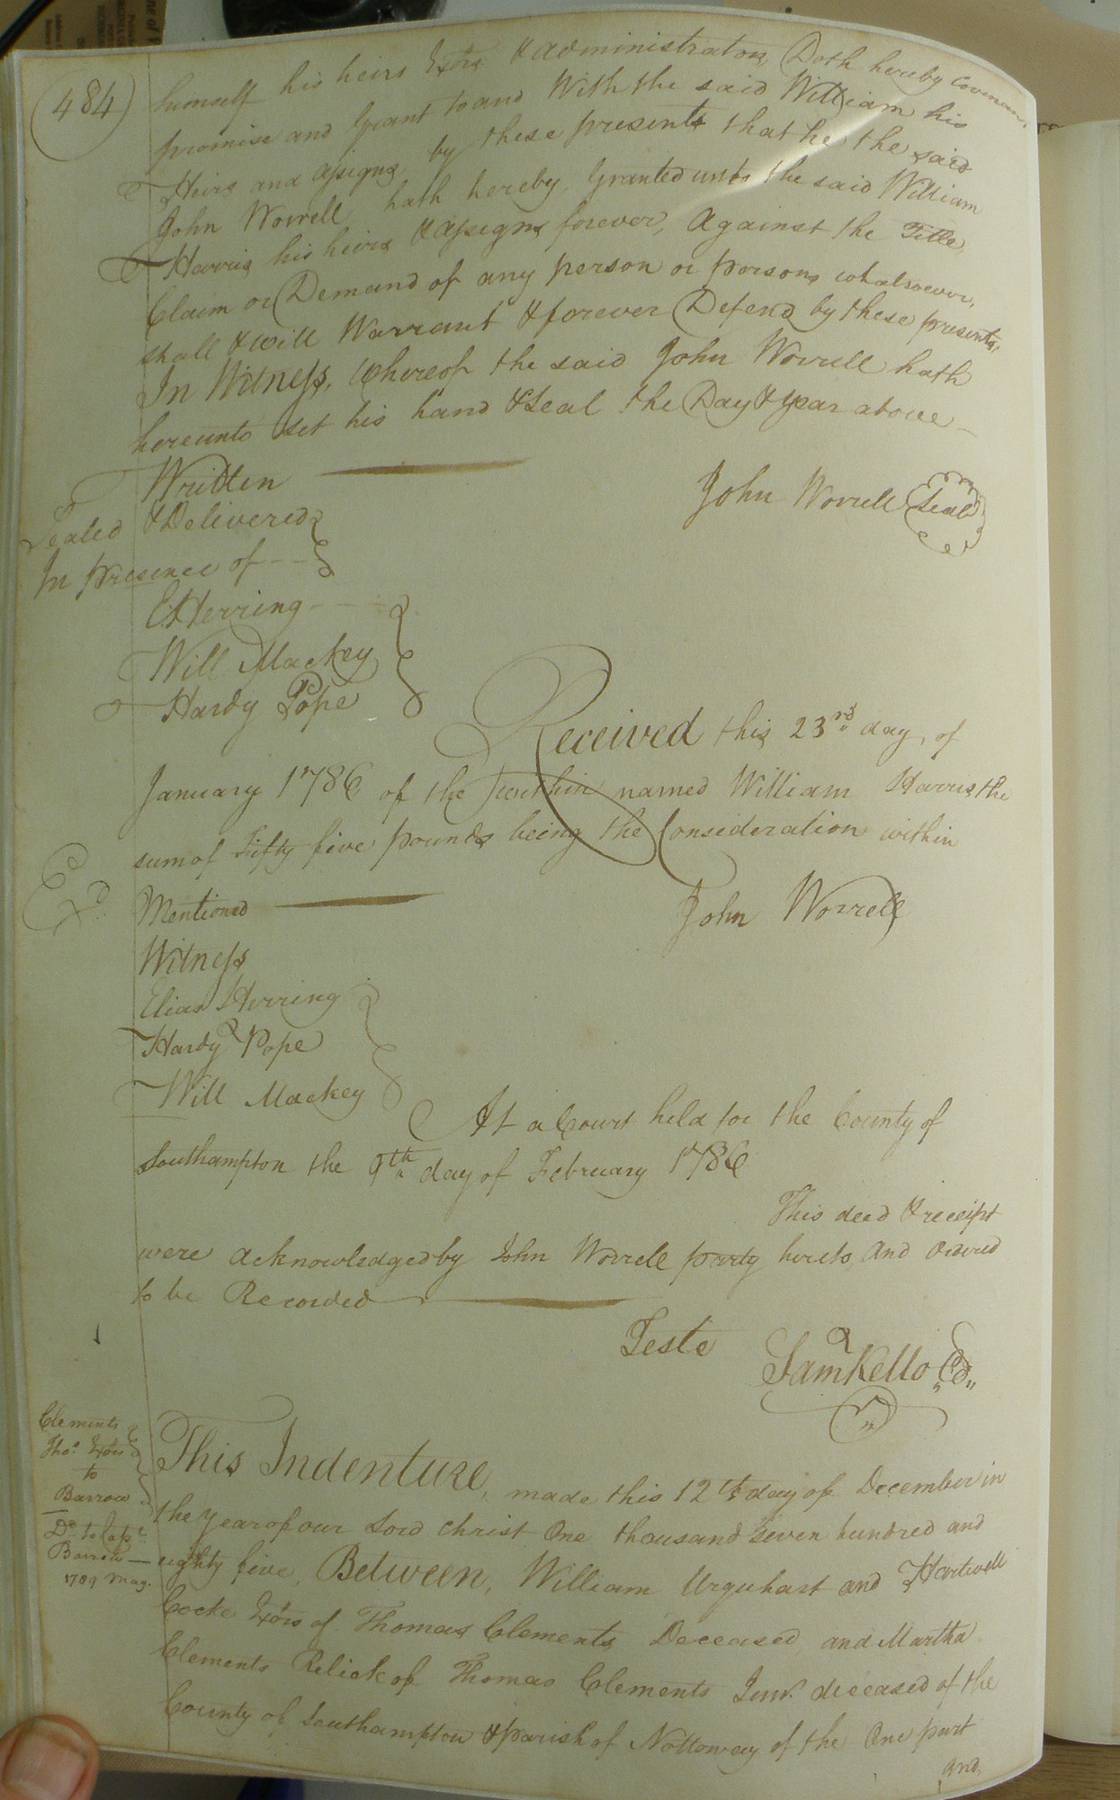 (484)
himself his heirs Exõrs & administrators, Doth hereby Covenant,
promise and Grant to and With the said William his
Heirs and assigns, by these presents that he, the said
John Worrell, hath hereby, Granted unto the said William
Harris, his heirs & assigns forever, against the Title,
Claim or Demand of any person or persons whatsoever,
shall & will Warrant & forever Defend by these presents,
In Witness, Whereof the said John Worrell hath
hereunto set his hand & Seal the Day & year above
Written
John Worrell Seal
Sealed & Delivered
In presence of
E Herring
Will Mackey
Hardy Pope
Received this 23rd day, of
January 1786 of the within named William Harris the
sum of Fifty five pounds being the Consideration within
Exd.
Mentioned
John Worrell
Witness
Elias Herring
Hardy Pope
Will Mackey
At a Court held for the County of
Southampton the 9th day of February 1786
This deed & receipt
were acknowledged by John Worrell party hereto, and ordered
to be Recorded
Teste
Saml Kello Cl.
Clements
Thos. Exõrs
to
Barrow
Barrow
1789 Mag.
This Indenture, made this 12th day of December in
the year of our Lord Christ One thousand seven hundred and
eighty five, Between, William Urquhart and Hartwell
Cocke Exõrs of Thomas Clements Deceased, and Martha
Clements Relick of Thomas Clements Junr. deceased of the
County of Southampton & parish of Nottoway of the One part
and,